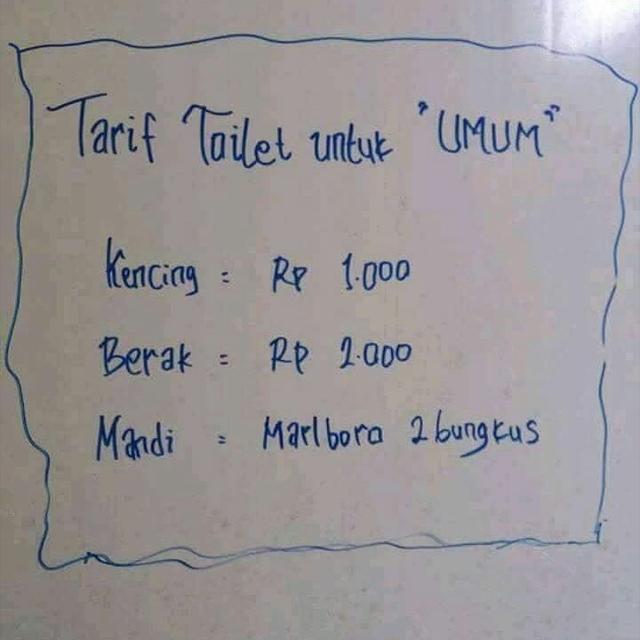 Tarif Toilet untuk "UMUM"
Kencing = Rp 1.000
Berak = Rp 2.000
Mandi = Marlboro 2 bungkus